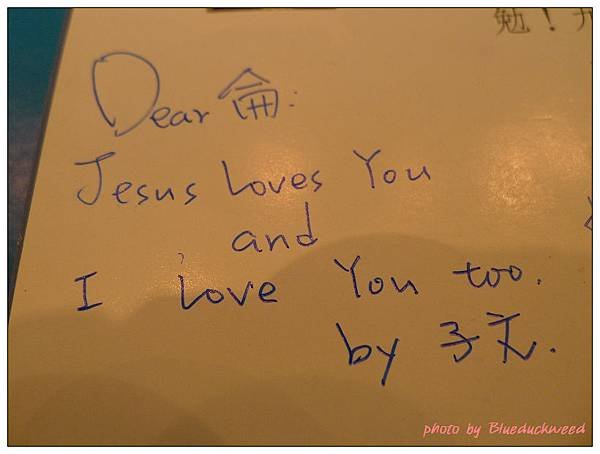 勉！
Dear 侖:
Jesus Loves You
and
I Love You too.
by 子文.
photo by Blueduckweed